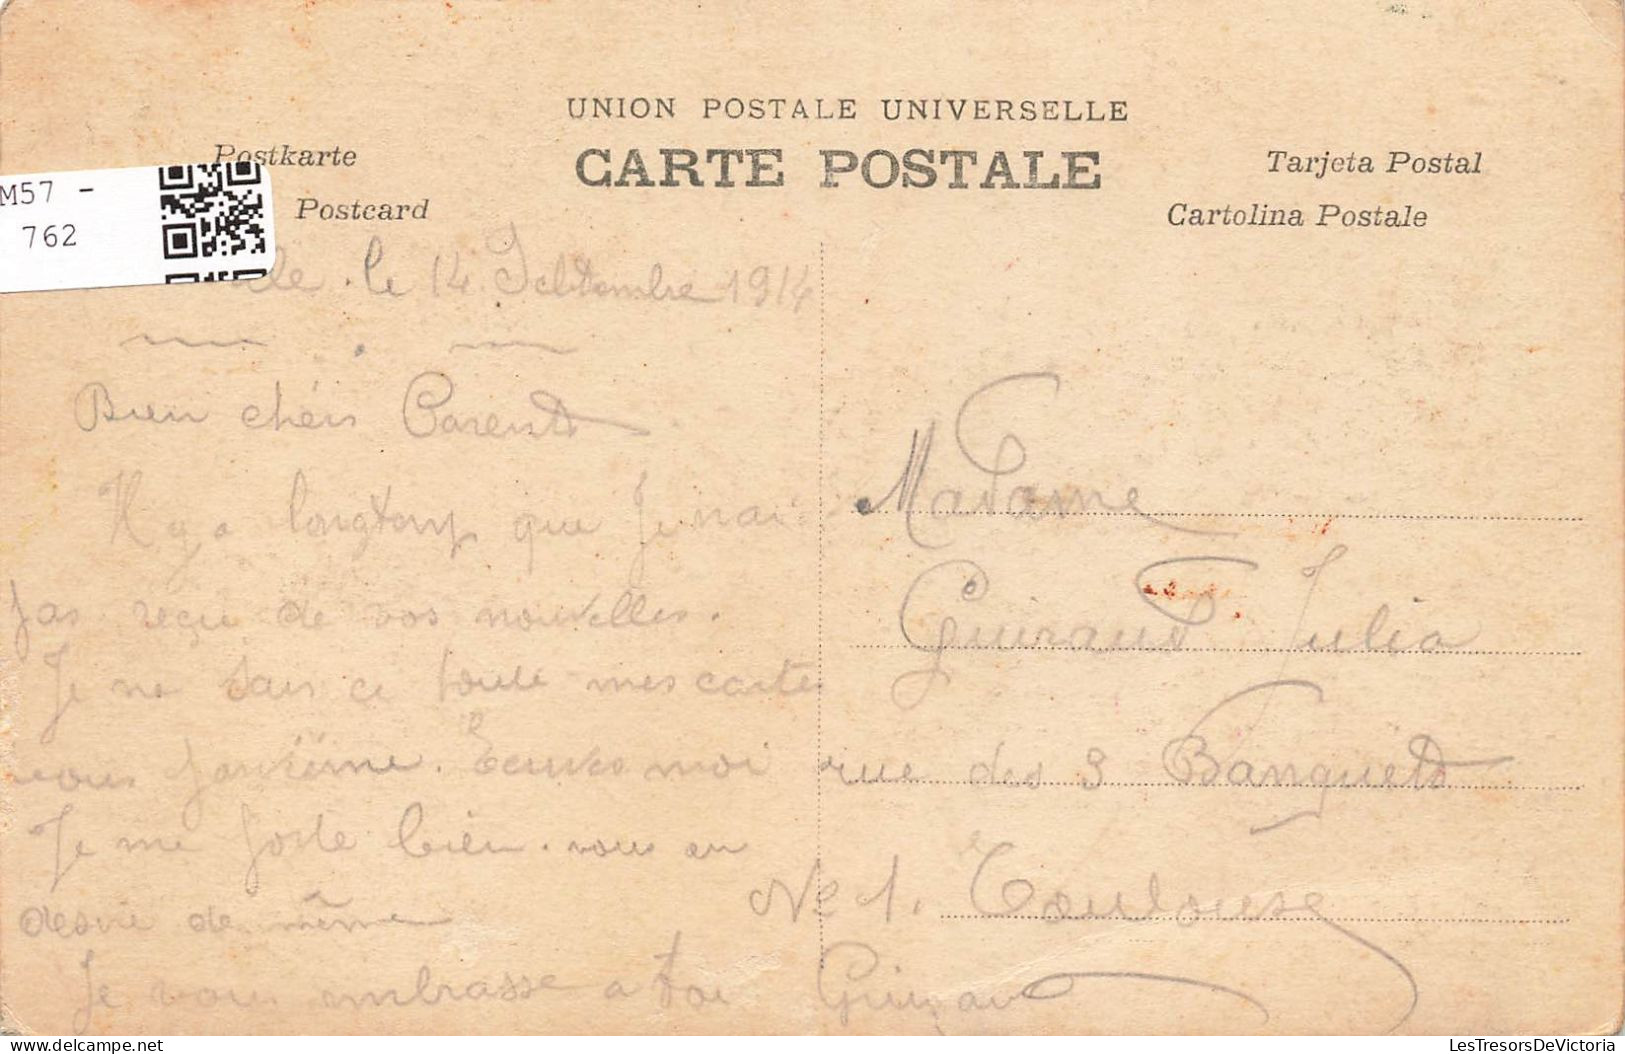 UNION POSTALE UNIVERSELLE
Postkarte
CARTE POSTALE
Tarjeta Postal
M57 -
762
Postcard
Cartolina Postale
le 14 Septembre 1914
Bien chéis Parents
Il y a longtemp que Je nai
pas reçu de vos nouvelles.
Je ne sais ci toute mes carte
vous parvienne. Ecrives moi
Je me porte bien. vous en
desire de même
Je vous embrasse a tous
Guiraud
Madame
Guiraud Julia
rue des 3 Banquets
No 1. Toulouse
delcampe.net
LesTresorsDeVictoria